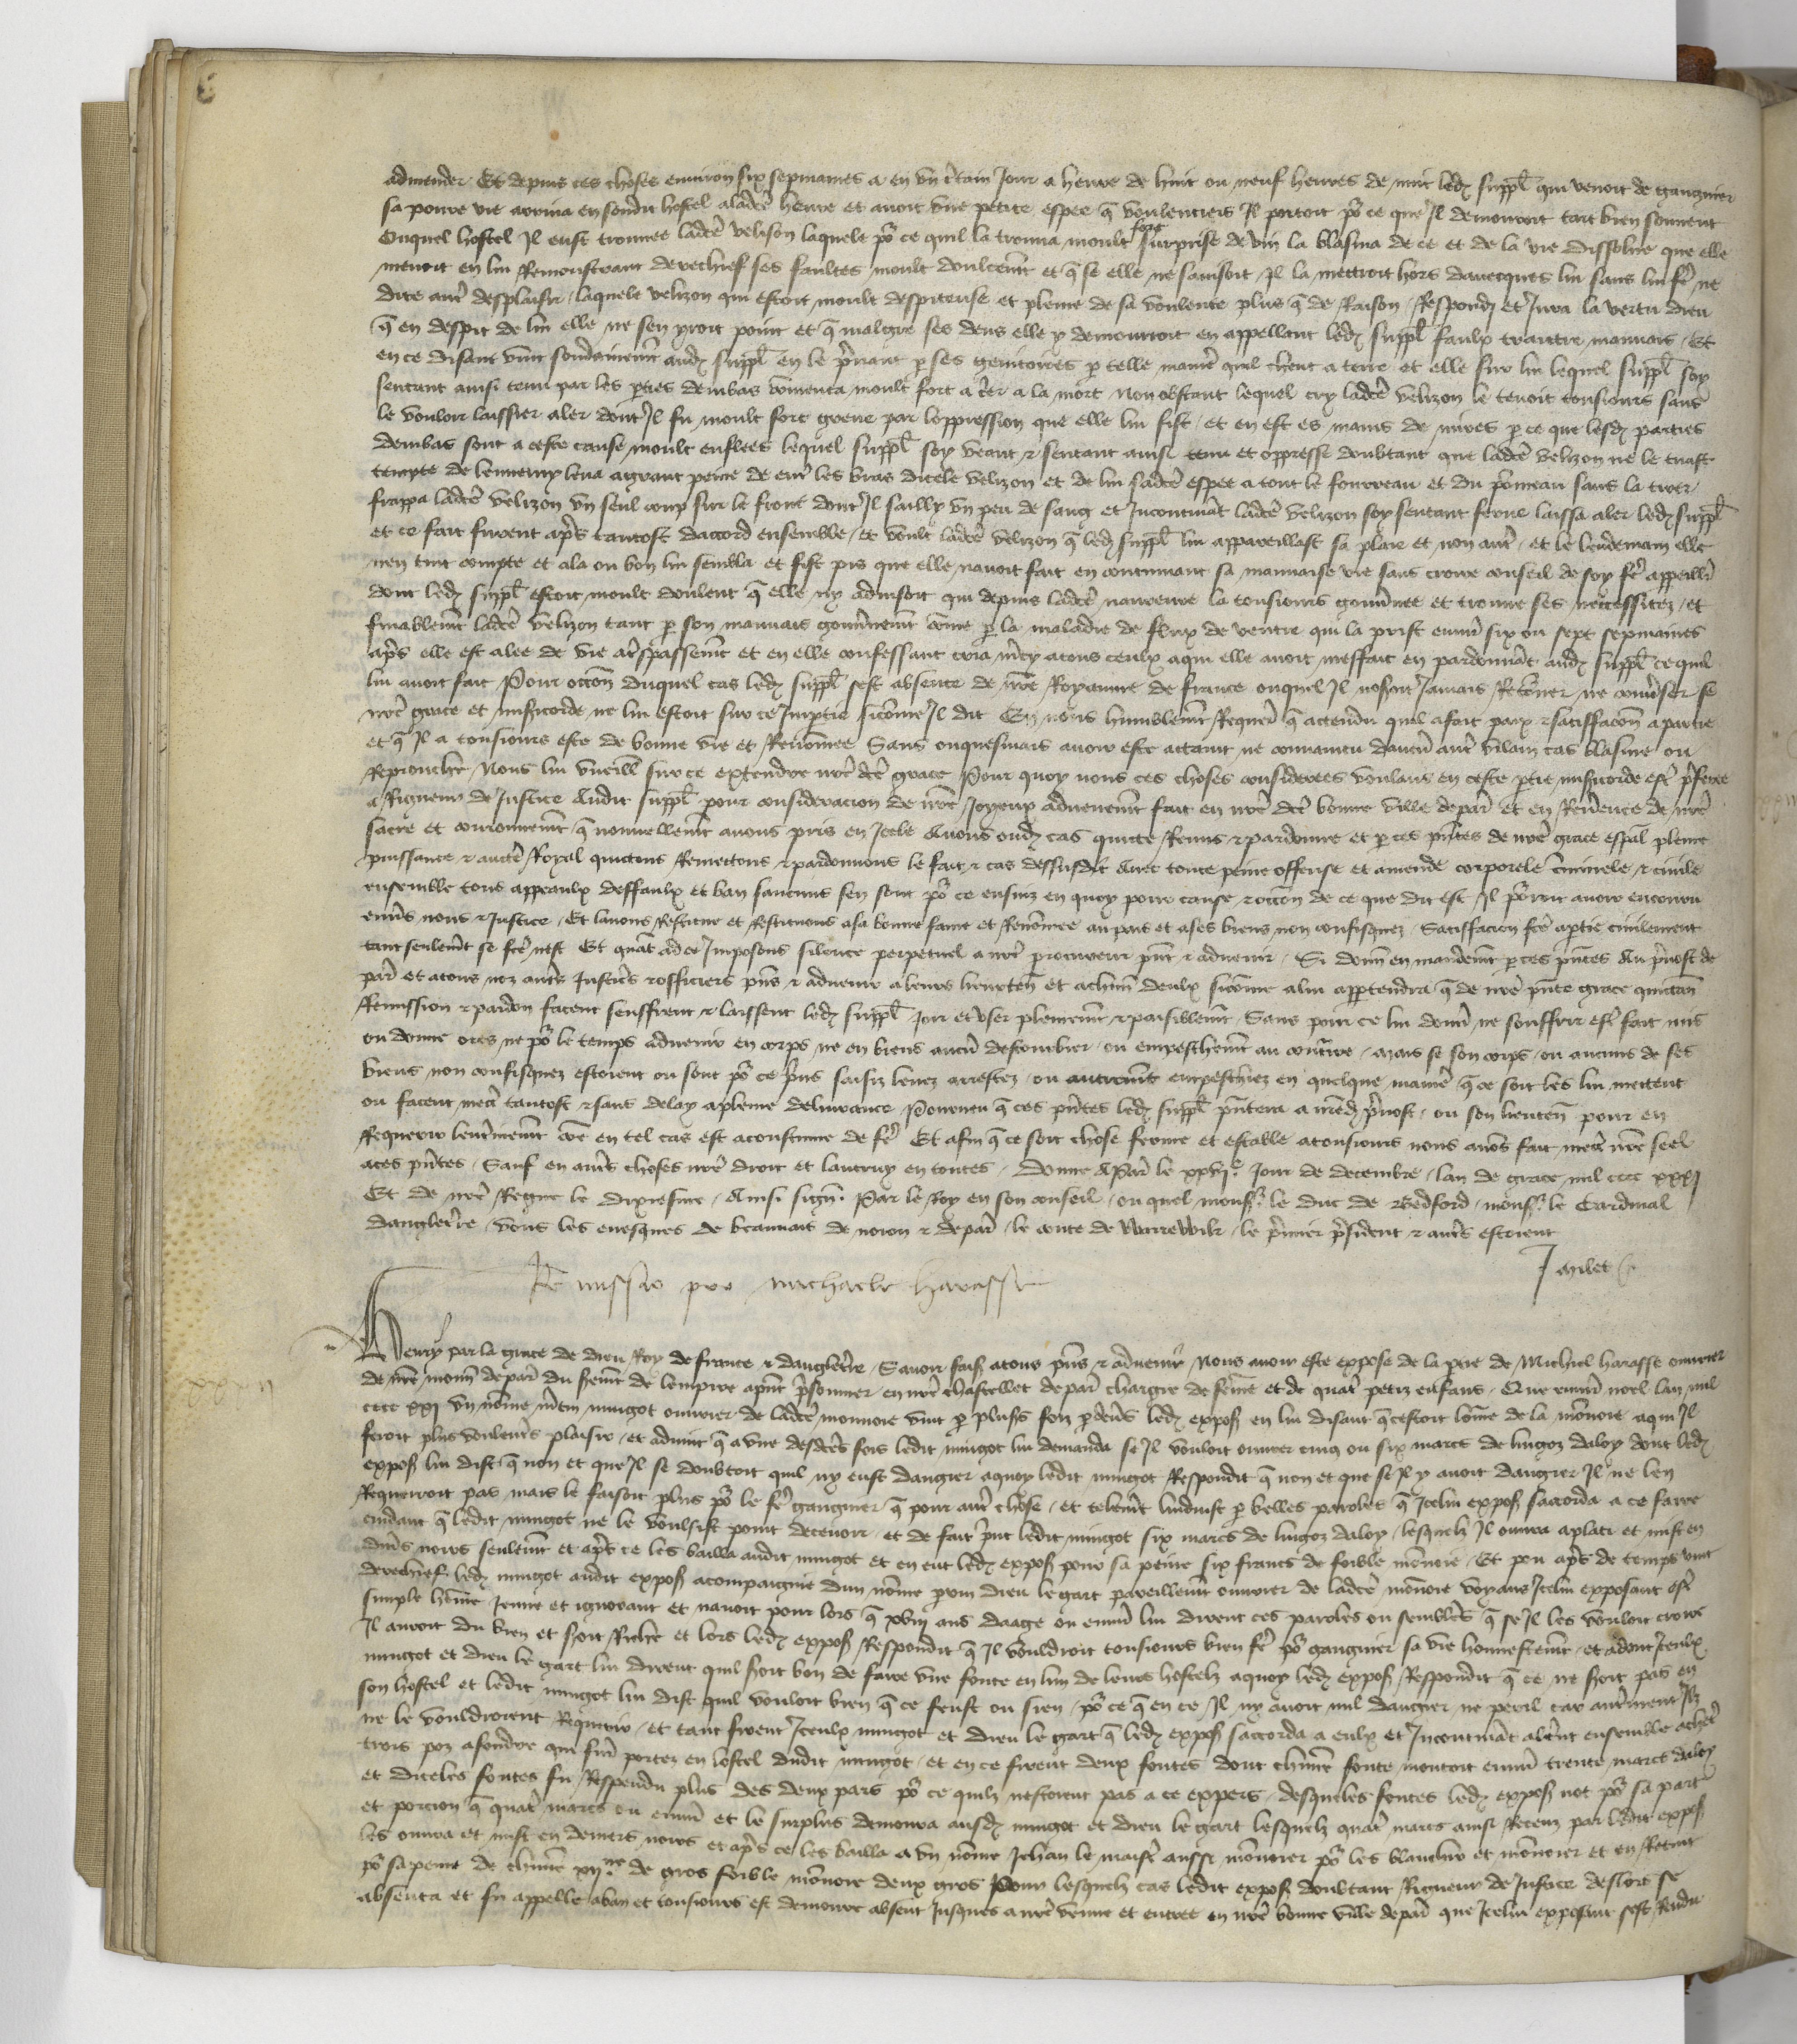 admender. Et depuis ces choses environ six sepmaines a en un certain jour a heure de huit ou neuf heures de nuit led. suppl. qui venoit de gaingnier
sa povre vie arriva en sondit hostel a ladte heure et avoit une petite espee q voulentiers il portoit po ce que il demouroit tart bien souvent
Ouquel hostel il eust trouvee ladte velison laquele po ce quil la trouva moult fort surprise de vin la blasma de ce et de la vie dissolue que elle
menoit en lui remonstrant derechief ses faultes moult doulcemt et q se elle ne savisoit il la mettroit hors davecques lui sans lui fe ne
dire aut desplaisir, laquele velizon qui estoit moult despiteuse et pleine de sa voulente plus q de raison, respondi et jura la vertu dieu
q en despit de lui elle ne sen yroit point et q malgre ses dens elle y demourroit en appellant led. suppl. faulx traictre mauvais. Et
en ce disant vint soudainemt aud. suppl. en le prenant p ses genitoires p telle manie quil cheut a terre et elle sur lui lequel suppl. soy
sentant ainsi tenu par les pties dembas commenca moult fort a crier a la mort non obstant lequel cry ladte velizon le tenoit tousjours sans
le vouloir laissier aler dont il fu moult fort greve par loppression que elle lui fist, et en est es mains de mires p ce que lesd. parties
dembas sont a ceste cause moult enflees lequel suppl. soy veant & sentant ainsi tenu et oppresse doubtant que ladte velizon ne le tuast
tempte de lennemy leva a grant peine de entre les bras dicele velizon et de lui sadte espee a tout le fourreau et du pommeau sans la tirer
frappa ladte velizon un seul coup sur le front dont il sailly un peu de sang et incontinat ladte velizon soy sentant ferue laissa aler led. suppl.
et ce fait furent apres tantost daccord ensemble, et voult ladte velizon q led. suppl. lui appareillast sa plaie et non aut, et le lendemain elle
nen tint compte et ala ou bon lui sembla et fist pis que elle navoit fait en continuant sa mauvaise vie sans croire conseil de soy fe appeillier
dont led. suppl. estoit moult doulent q elle ny advisoit qui depuis ladte navreure la tousjours gouvernee et trouve ses neccessitez, et
finablemt ladte velizon tant p son mauvais gouvernemt come p la maladie de flux de ventre qui la prist environ six ou sept sepmaines
apres elle est alee de vie a trespassemt et en elle confessant cria mercy a tous ceulx a qui elle avoit meffait en pardonnat aud. suppl. ce quil
lui avoit fait Pour occon duquel cas led. suppl. sest absente de nre Royaume de france ouquel il nosoit jamais retorner ne converser se
nre grace et misicorde ne lui estoit sur ce impartie sicome il dit En nous humblemt requerant q actendu quil a fait paix & satisfacon a partie
et q il a tousjours este de bonne vie et renommee Sans onquesmais avoir este attaint ne convaincu daucun aut vilain cas blasme ou
reprouche, Nous lui vueill. sur ce extendre nre dte grace Pour quoy nous ces choses considerees voulans en ceste ptie misicorde estre preferee
a rigueur de justice Audit suppl. pour consideracion de nre joyeux advenemt fait en nre dte bonne ville de paris et en reverence de nre
sacre et couronnemt q nouvellemt avons pris en icele Avons oud. cas quicte remis & pardonne et p ces pntes de nre grace espal plaine
puissance & auctte Royal quictons Remettons & pardonnons le fait & cas dessusdit Avec toute peine offense et amende corporele criminele & civile
ensemble tous appeaulx deffaulx et ban saucuns sen sont po ce ensuiz en quoy pour cause & occon de ce que dit est il porroit avoir encouru
envers nous & Justice, Et lavons restitue et restituons a sa bonne fame et renommee au pais et a ses biens non confisquez, Satisfacion fte a ptie civilement
tant seulemt se fte nest Et quat ad ce imposons silence perpetuel a nre procureur pnt & advenir, Si donn en mandemt p ces pntes Au prevost de
paris et a tous noz autres Justiciers & officiers pns & advenir a leurs lieuxten et a chun deulx sicomme a lui appartendra q de nre pnte grace quictance
Remission & pardon facent seuffrent & laissent led. suppl. joir et user plenemt & paisiblemt Sans pour ce lui donner ne souffrir estre fait mis
ou donne ores ne po le temps advenir en corps ne en biens aucun destourbier, ou empeschemt au contraire, Mais se son corps, ou aucuns de ses
biens non confisquez estoient ou sont po ce prins saisiz levez arrestez, ou autremt empeschiez en quelque manie, q ce soit les lui mettent
ou facent mettre tantost & sans delay a pleine delivrance, Pourveu q ces pntes led. suppl. pntera a nred. prevost, ou son lieuten pour en
requerir lenterinemt come en tel cas est acoustume de fe Et afin q ce soit chose ferme et estable a tousjours nous avons fait mettre nre seel
a ces pntes, Sauf en autres choses nre droit et lautruy en toutes, Donne A Paris le xxvje jour de decembre, lan de grace mil cccc xxxj
Et de nre Regne le dixiesme, Ainsi signe. Par le Roy en son conseil, ou quel mons. le duc de Bedford, mons. le Cardinal
dangleterre, vous les evesques de beauvais de noion & de paris, le conte de Warrewik, le premier president & autres estoient
J Milet
Remissio pro michaele harasse
Henry par la grace de dieu Roy de france & dangleterre, Savoir fais. a tous pns & advenir Nous avoir este expose de la ptie de Michiel harasse ouvrier
de nre monn de paris du seremt de lempire apnt prisonnier en nre chastellet de paris chargie de feme et de quatre petiz enfans, Que environ noel lan mil
cccc xxj un nomme martin mingot ouvrier de ladte monnoie vint p plusrs foiz p devers led. expos. en lui disant q cestoit lomme de la monnoie a qui il
feroit plus voulentiers plaisir, et advint q a une desdtes fois ledit mingot lui demanda se il vouloit ouvrer cinq ou six marcs de lingoz daloy dont led.
expos. lui dist q non et que il se doubtoit quil ny eust dangier a quoy ledit mingot respondit q non et que se il y avoit dangier il ne len
requerroit pas mais le faisoit plus po le fe gaingnier q pour aut chose, et telemt linduist p belles paroles q icelui expos. saccorda a ce faire
cuidant q ledit mingot ne le voulsist point decevoir, et de fait print ledit mingot six marcs de lingoz daloy, lesquelz il ouvra a plati et mist en
deniers noirs seulemt et apres ce les bailla audit mingot et en eut led. expos. pour sa peine six francs de foible monnoie, Et peu apres de temps vint
derechief led. mingot audit expos. acompaignie dun nomme perrin dieu le gart pareillemt ouvrier de ladte monnoie voyans icelui exposant estre
simple homme jeune et ignorant et navoit pour lors q xviij ans daage ou environ lui dirent ces paroles ou semblables q se il les vouloit croire
il auroit du bien et seroit riche et lors led. expos. respondit q il vouldroit tousjours bien fe po gaingnier sa vie honnestemt, et adont iceulx
mingot et dieu le gart lui dirent quil seroit bon de faire une fonte en lun de leurs hostelz a quoy led. expos. respondit q ce ne seroit pas en
son hostel et ledit mingot lui dist quil vouloit bien q ce feust ou sien, po ce q en ce il ny avoit nul dangier ne peril car autrement ilz
ne le vouldroient requerir, et tant firent iceulx mingot et dieu le gart q led. expos. saccorda a eulx et incontinat alerent ensemble acheter
trois poz a fondre qui furent portez en lostel dudit mingot, et en ce firent deux fontes dont chune fonte montoit environ trente marcs daloy
et diceles fontes fu respendu plus des deux pars po ce quilz nestoient pas a ce expers, desqueles fontes led. expos. not po sa part
et porcion q quatre marcs ou environ et le surplus demoura ausd. mingot et dieu le gart lesquelz quatre marcs ainsi receuz par ledit expos.
les ouvra et mist en deniers noirs et apres ce les bailla a un nomme Jehan le maistre aussi monnoier po les blanchir et monnoier et en retint
po sa peine de chune xijne de gros foible monnoie deux gros Pour lesquelz cas ledit expos. doubtant rigueur de justice deslors se
absenta et fu appelle a ban et tousjours est demoure absent jusques a nre venue et entree en nre bonne ville de paris que icelui exposant sest rendu